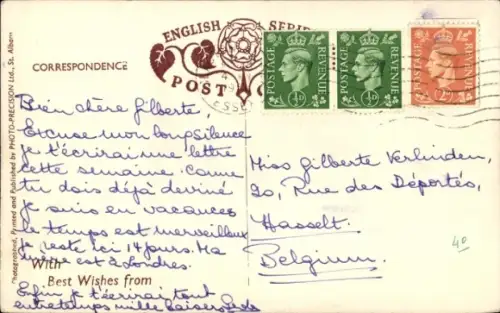 ENGLISH SERIES
POST
CORRESPONDENCE
ESSEX
POSTAGE REVENUE
½D
POSTAGE REVENUE
½D
POSTAGE REVENUE
Bien chère Gilberte,
Excuse mon long silence
je t'écrirai une lettre
cette semaine. comme
tu dois déjà deviné
je suis en vacances
le temps est merveilleux
je reste ici 14 jours. Ma
mère est à Londres.
With
Best Wishes from
Enfin je t'écrirai tout
entretemps mille baisers
Miss Gilberte Verlinden,
20, Rue des Déportés,
Hasselt.
Belgium.
40
Photographed, Printed and Published by PHOTO-PRECISION Ltd., St. Albans